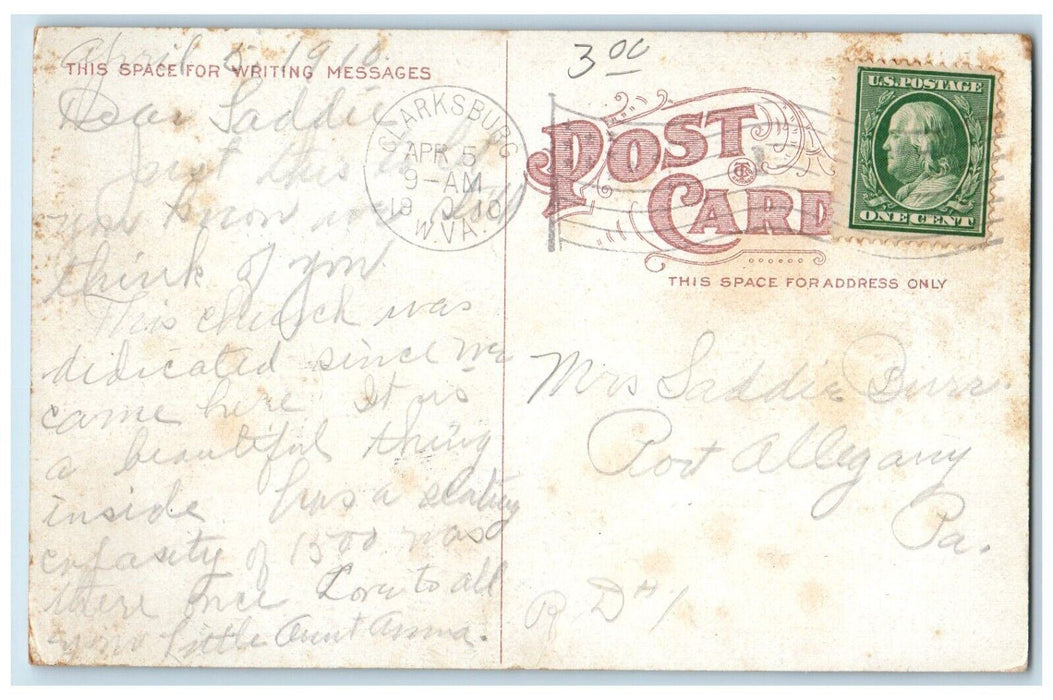 April 5 1910.
THIS SPACE FOR WRITING MESSAGES
Dear Saddie
Just this to let
you know we still
think of you
This church was
dedicated since we
came here It is
a beautiful thing
inside has a seating
capasity of 1500 was
there once Love to all
your Little Aunt Anna.
CLARKSBURG
APR 5
9-AM
1910
W.VA.
3 00
POST
CARD
THIS SPACE FOR ADDRESS ONLY
U.S. POSTAGE
ONE CENT
Mrs Saddie Burr
Port Allegany
Pa.
R D # 1